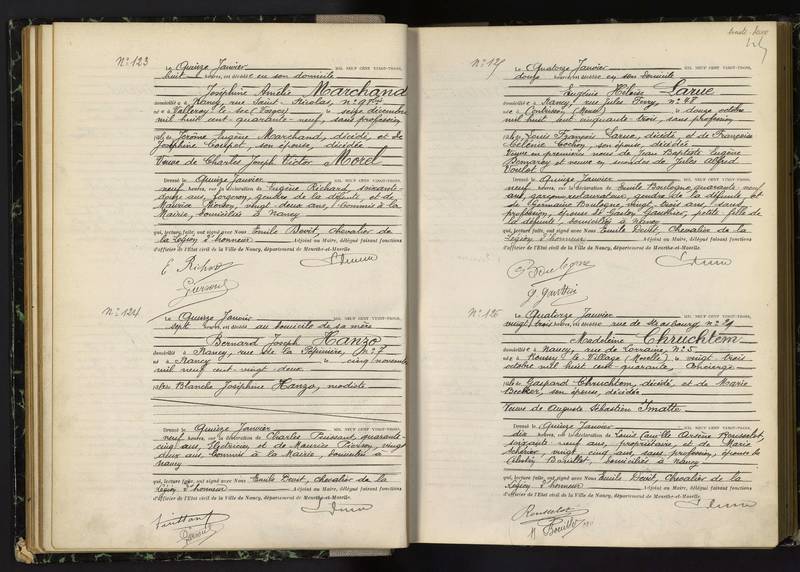 N° 123
Le Quinze Janvier MIL NEUF CENT VINGT-TROIS,
huit heures, est décédée en son domicile
Joséphine Amélie Marchand
domiciliée à Nancy, rue Saint-Nicolas, n°
née à le seize décembre
mil huit cent quarante-neuf, sans profession
fille de Jérôme Eugène Marchand, décédé, et de
Joséphine son épouse, décédée
Veuve de Charles Joseph Victor Morel
Dressé le Quinze Janvier MIL NEUF CENT VINGT-TROIS,
neuf heures, sur la déclaration de Eugène Richard, soixante-
douze ans, forgeron, gendre de la défunte, et de
Maurice vingt-deux ans, Commis à la
Mairie, domiciliés à Nancy
qui, lecture faite, ont signé avec Nous Emile Devit, chevalier de
la Légion d'honneur Adjoint au Maire, délégué faisant fonctions
d'officier de l'Etat civil de la Ville de Nancy, département de Meurthe-et-Moselle.
N° 124
Le Quinze Janvier MIL NEUF CENT VINGT-TROIS,
sept heures, est décédé au domicile de sa mère
Bernard Joseph Hanzo
domicilié à Nancy, rue de la Pépinière, n° 7
né à Nancy le cinq novembre
mil neuf cent vingt-deux
fils de Blanche Joséphine Hanzo, modiste
Dressé le Quinze Janvier MIL NEUF CENT VINGT-TROIS,
neuf heures, sur la déclaration de Charles quarante-
cinq ans, et de Maurice vingt
deux ans, Commis à la Mairie, domiciliés à
Nancy
qui, lecture faite, ont signé avec Nous Emile Devit, chevalier de la
Légion d'honneur Adjoint au Maire, délégué faisant fonctions
d'officier de l'Etat civil de la Ville de Nancy, département de Meurthe-et-Moselle.
N° 125
Le Quatorze Janvier MIL NEUF CENT VINGT-TROIS,
douze heures, est décédée en son domicile
Eugénie Hélène Larue
domiciliée à Nancy, rue Jules Ferry, n° 48
née à (Meuse) le douze octobre
mil huit cent cinquante-trois, sans profession
fille de Louis François Larue, décédé, et de Françoise
Cochon, son épouse, décédée
Veuve en premières noces de Jean Baptiste Eugène
et veuve en secondes de Jules Alfred
Dressé le Quinze Janvier MIL NEUF CENT VINGT-TROIS,
neuf heures, sur la déclaration de Emile Boulogne, quarante-neuf
ans, garçon restaurateur, gendre de la défunte, et
de Germaine Boulogne, vingt-trois ans, sans
profession, épouse de Gaston Gauthier, petite fille de
la défunte, domiciliés à Nancy
qui, lecture faite, ont signé avec Nous Emile Devit, Chevalier de la
Légion d'honneur Adjoint au Maire, délégué faisant fonctions
d'officier de l'Etat civil de la Ville de Nancy, département de Meurthe-et-Moselle.
N° 126
Le Quatorze Janvier MIL NEUF CENT VINGT-TROIS,
vingt-trois heures, est décédée rue de Strasbourg n° 29
Madeleine Chruchtem
domiciliée à Nancy, rue de Lorraine n° 5
née à Roussy-le-Village (Moselle) le vingt-trois
octobre mil huit cent quarante, concierge
fille de Gaspard Chruchtem, décédé, et de Marie
Becker, son épouse, décédée
Veuve de Auguste Sébastien
Dressé le Quinze Janvier MIL NEUF CENT VINGT-TROIS,
dix heures, sur la déclaration de Louis Camille Arsène Rousselot,
soixante-neuf ans, propriétaire, et de Marie
vingt-cinq ans, sans profession, épouse de
domiciliés à Nancy
qui, lecture faite, ont signé avec Nous Emile Devit, Chevalier de la
Légion d'honneur Adjoint au Maire, délégué faisant fonctions
d'officier de l'Etat civil de la Ville de Nancy, département de Meurthe-et-Moselle.
Rousselot